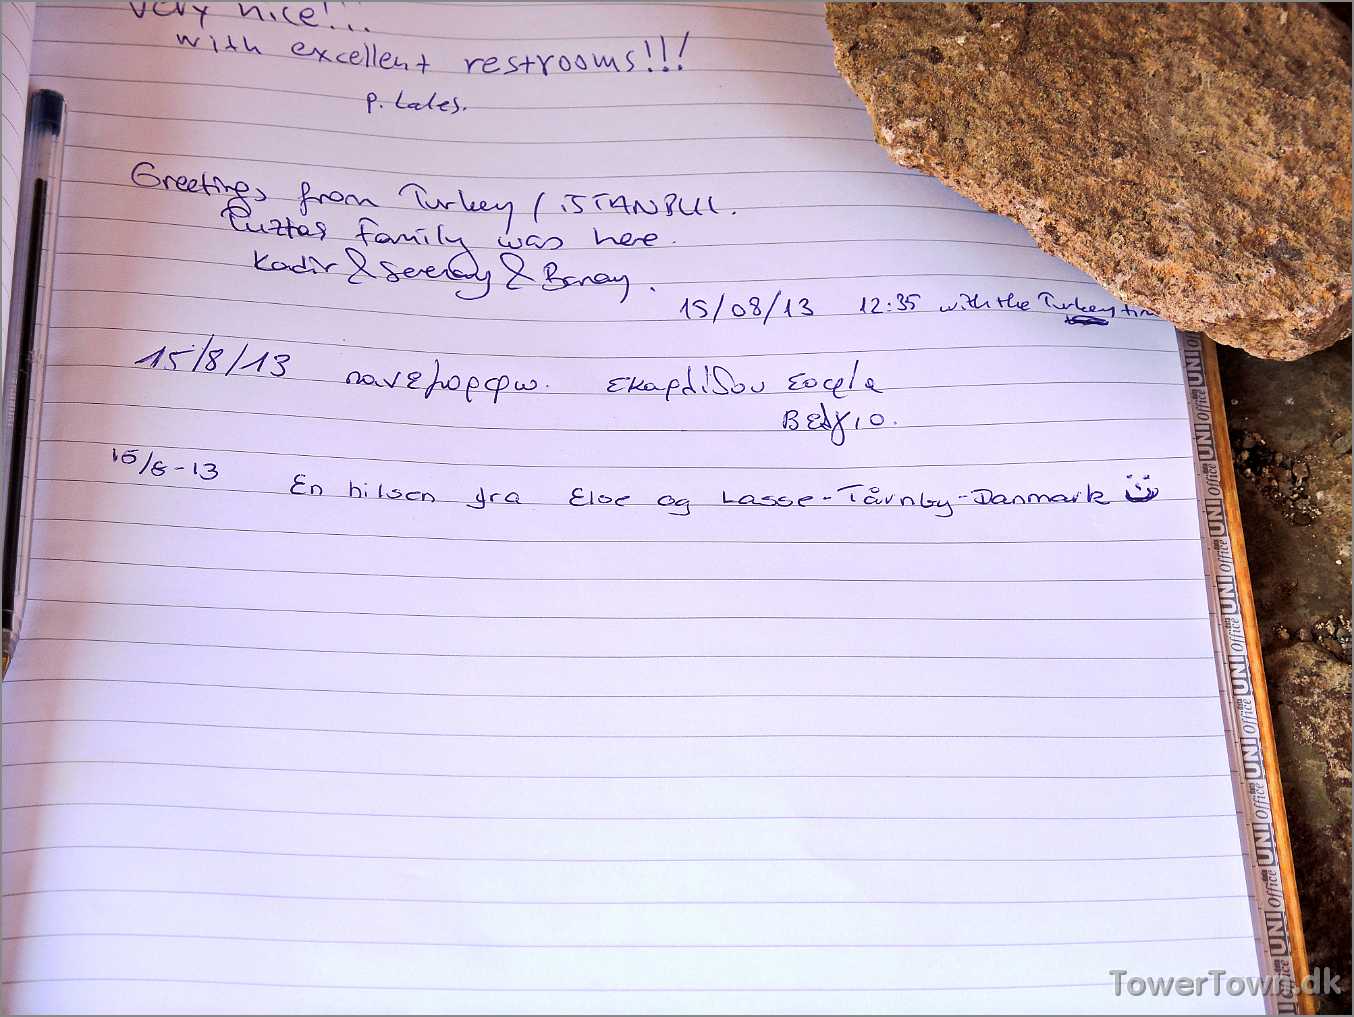 very nice!...
with excellent restrooms!!!
Greetings from Turkey / iSTANBUL.
family was here.
Kadir & &
15/08/13 12:35 with the Turkey
15/8/13 πανεμορφω. Σοφία
Βελγιο.
15/8-13 En hilsen fra Else og Lasse-Tårnby-Danmark
UNI office
UNI office
UNI office
UNI office
UNI office
UNI office
UNI office
UNI office
TowerTown.dk